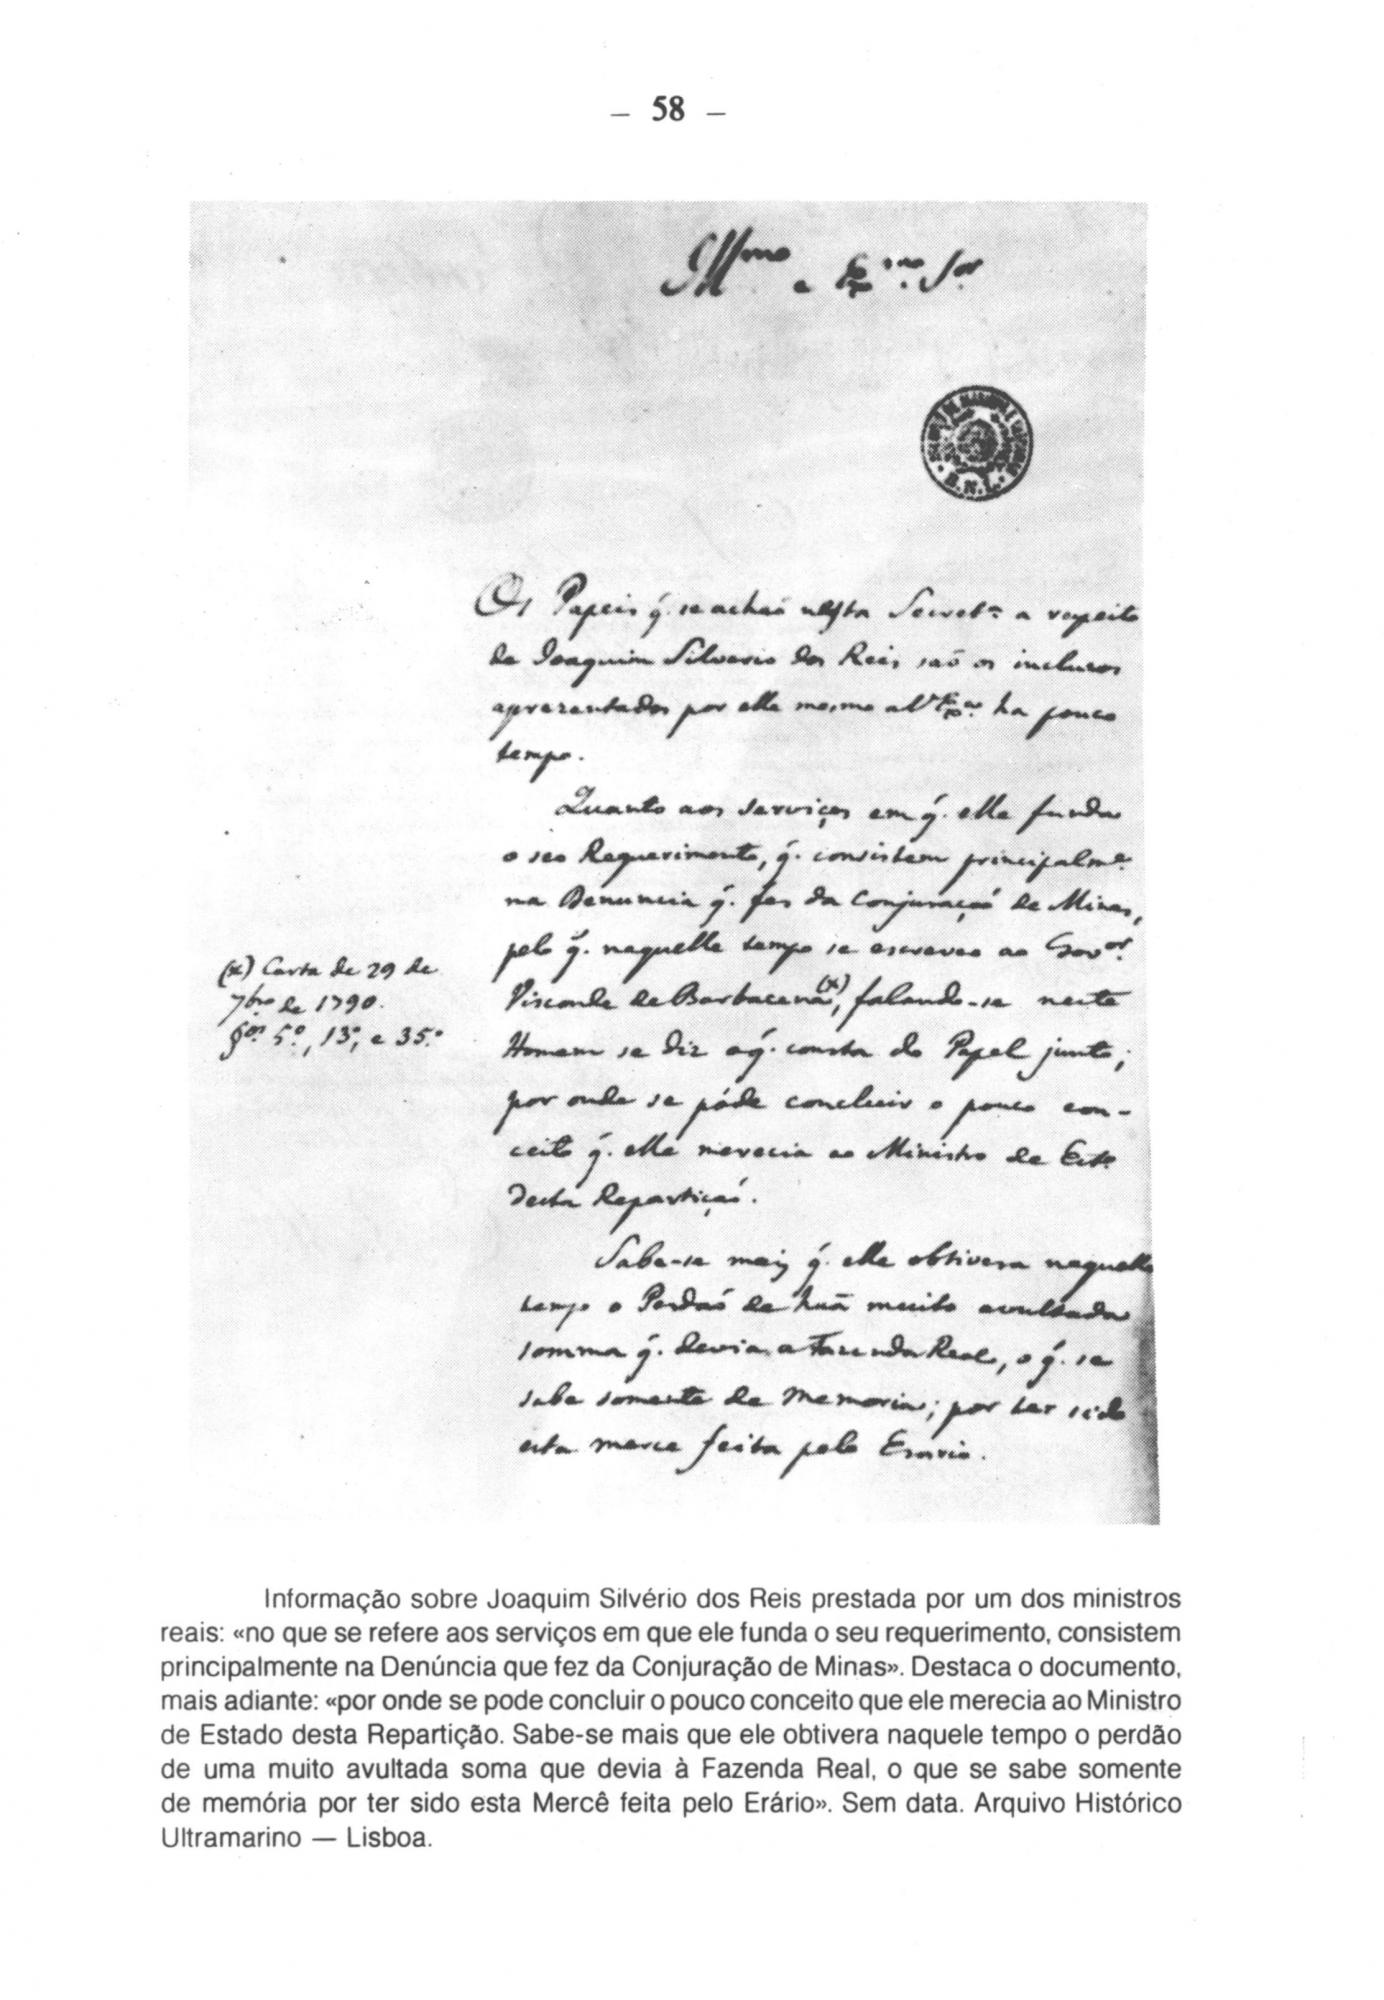 – 58 –
Illmo e Exmo Sor
B. N. L.
Os Papeis q̃. se achaõ nesta Secretª a respeito
de Joaquim Silverio dos Reis saõ os incluzos
aprezentados por elle mesmo a V Exª ha pouco
tempo.
Quanto aos serviços em q̃. elle funda
o seo Requerimento, q̃. consistem principalmᵉ
na Denuncia q̃. fes da Conjuraçaõ de Minas,
pelo q̃. naquelle tempo se escreveo ao Govᵒʳ
Visconde de Barbacena(x), falando-se neste
Homem se diz o q̃. consta do Papel junto;
por onde se póde concluir o pouco con-
ceito q̃. elle merecia ao Ministro de Estº
desta Repartiçaõ.
(x) Carta de 29 de
7bro de 1790.
§os 5º, 13º, e 35º
Sabe-se mais q̃. elle obtivera naquelle
tempo o Perdaõ de huã muito avultada
somma q̃. devia a Fazenda Real, o q̃. se
sabe somente de Memoria; por ter sido
esta merce feita pelo Erario.
Informação sobre Joaquim Silvério dos Reis prestada por um dos ministros
reais: «no que se refere aos serviços em que ele funda o seu requerimento, consistem
principalmente na Denúncia que fez da Conjuração de Minas». Destaca o documento,
mais adiante: «por onde se pode concluir o pouco conceito que ele merecia ao Ministro
de Estado desta Repartição. Sabe-se mais que ele obtivera naquele tempo o perdão
de uma muito avultada soma que devia à Fazenda Real, o que se sabe somente
de memória por ter sido esta Mercê feita pelo Erário». Sem data. Arquivo Histórico
Ultramarino — Lisboa.